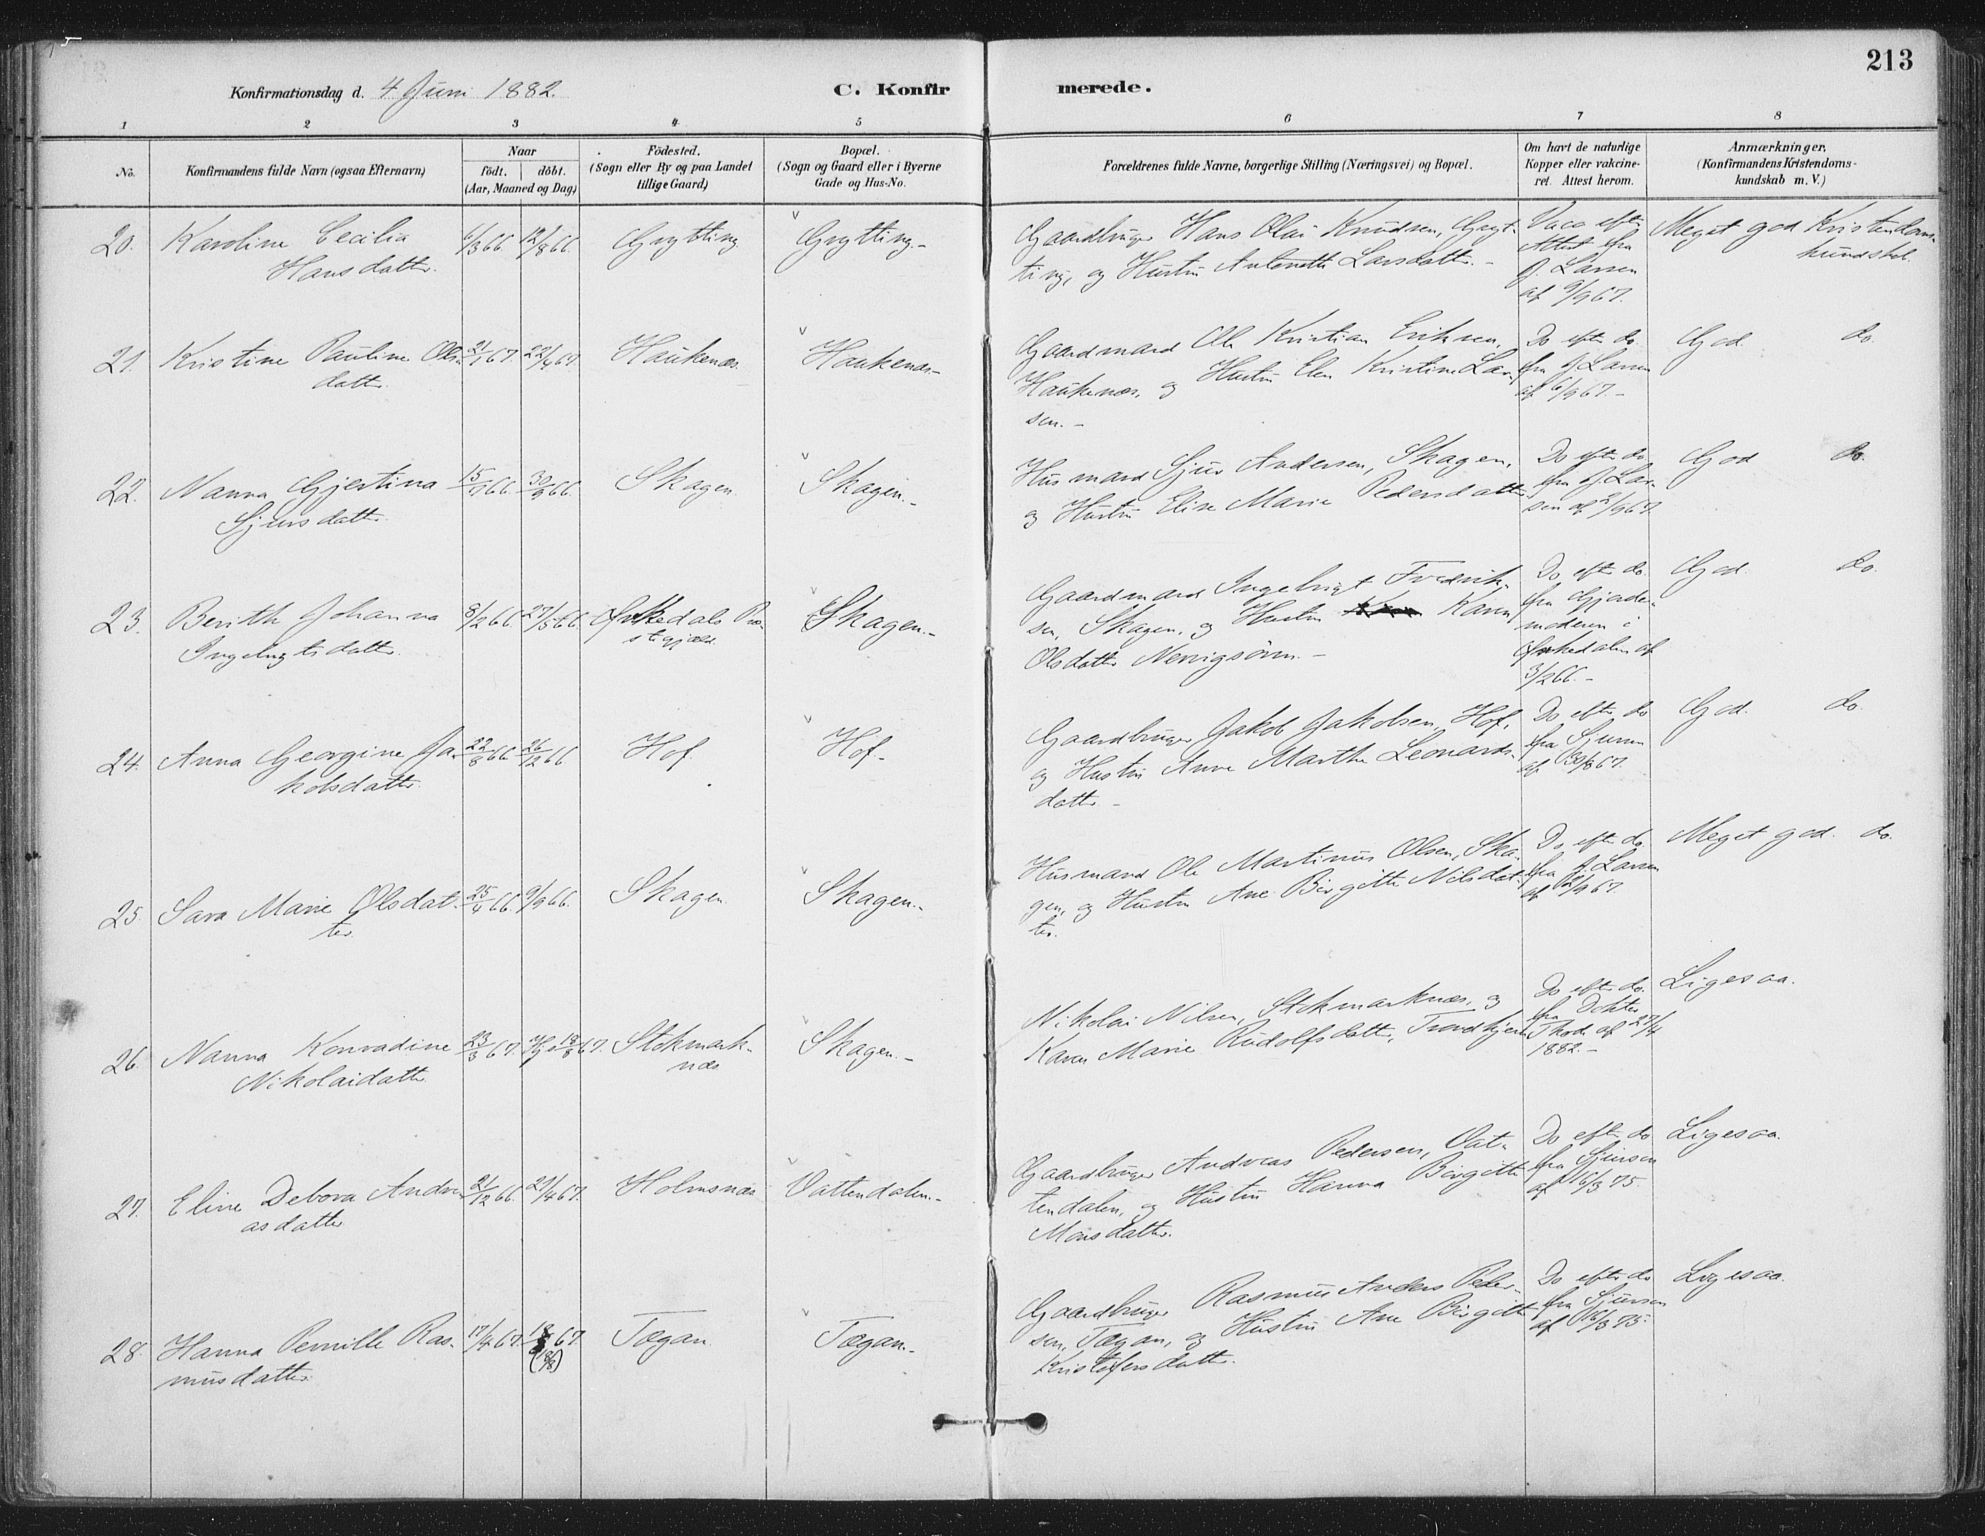 213
Konfirmationsdag d. 4 Juni 1882.
C. Konfir merede.
1 2 3 4 5 6 7 8
No.
Konfirmandens fulde Navn (ogsaa Efternavn)
Naar
födt. döbt.
(Aar, Maaned og Dag)
Födested.
(Sogn eller By og paa Landet
tillige Gaard)
Bopæl.
(Sogn og Gaard eller i Byerne
Gade og Hus-No.
Forældrenes fulde Navne, borgerlige Stilling (Næringsvei) og Bopæl.
Om havt de naturlige
Kopper eller vakcine-
ret. Attest herom.
Anmærkninger,
(Konfirmandens Kristendoms-
kundskab m. V.)
20. Karoline Cecilia
Hansdatter.
6/3 66 12/8 66.
Grytting
Grytting-
Gaardbruger Hans Olai Knudsen, Gryt-
ting, og Hustru Antonette Larsdatter. -
Vacc. efter
Attest fra
J. Larsen
af 9/9 67.
Meget god Kristendoms-
kundskab.
21. Kristine Pauline Ols-
datter.
21/1 67 22/4 67.
Haukenæs
Haukenæs-
Gaardmand Ole Kristian Eriksen,
Haukenæs, og Hustru Elen Kristine Lar-
sen. -
Do efter do
fra J. Larsen
af 6/9 67. -
God do.
22. Nanna Gjertina
Sjursdatter.
15/7 66. 30/9 66.
Skagen
Skagen.-
Husmand Sjur Andersen, Skagen,
og Hustru Elise Marie Pedersdatter
Do efter do
fra J. Lar-
sen af 2/9 67
God do.
23. Berith Johanna
Ingebrigtsdatter.
8/2 66 27/5 66.
Orkedals Præ-
stegjæld
Skagen.-
Gaardmand Ingebrigt Fredrik-
sen, Skagen, og Hustru Karen
Olsdatter -
Do. efter do.
fra Gjorde-
moderen i
Orkedalen af
3/2 66. -
God. do.
24. Anna Georgine Ja-
kobsdatter.
22/8 66 26/12 66
Hof.
Hof-
Gaardbruger Jakob Jakobsen, Hof,
og Hustru Anne Marthe Leonards-
datter -
Do efter do
fra Sjursen
af 30/8 67.
God. do.
25. Sara Marie Olsdat-
ter.
25/4 66. 9/9 66.
Skagen
Skagen.-
Husmand Ole Martinus Olsen, Ska-
gen, og Hustru Ane Birgitte Nilsdat-
ter.
Do efter do
fra J. Larsen
af 12/9 67.
Meget god. do.
26. Nanna Konradine
Nikolaidatter
23/3 67.
Stokmark-
næs
Skagen.-
Nikolai Nilsen, Stokmarknæs, og
Karen Marie Rudolfsdatter, Trondhjem
Do efter do.
fra Doktor
Thode af 27/4
1882. -
Ligesaa.
27. Eline Debora Andre-
asdatter
21/12 66. 29/4 67.
Holmsnæs
Vattendalen.-
Gaardbruger Andreas Pedersen, Vat-
tendalen, og Hustru Hanna Birgitte
Monsdatter.
Do efter do
fra Sjursen
af 16/3 75.
Ligesaa.
28. Hanna Pernille Ras-
musdatter
17/4 67.
Tægan
Tægan.-
Gaardbruger Rasmus Anders Peder-
sen, Tægan, og Hustru Ane Birgitte
Kristofersdatter.
Do efter do
fra Sjursen
af 16/3 75.
Ligesaa.